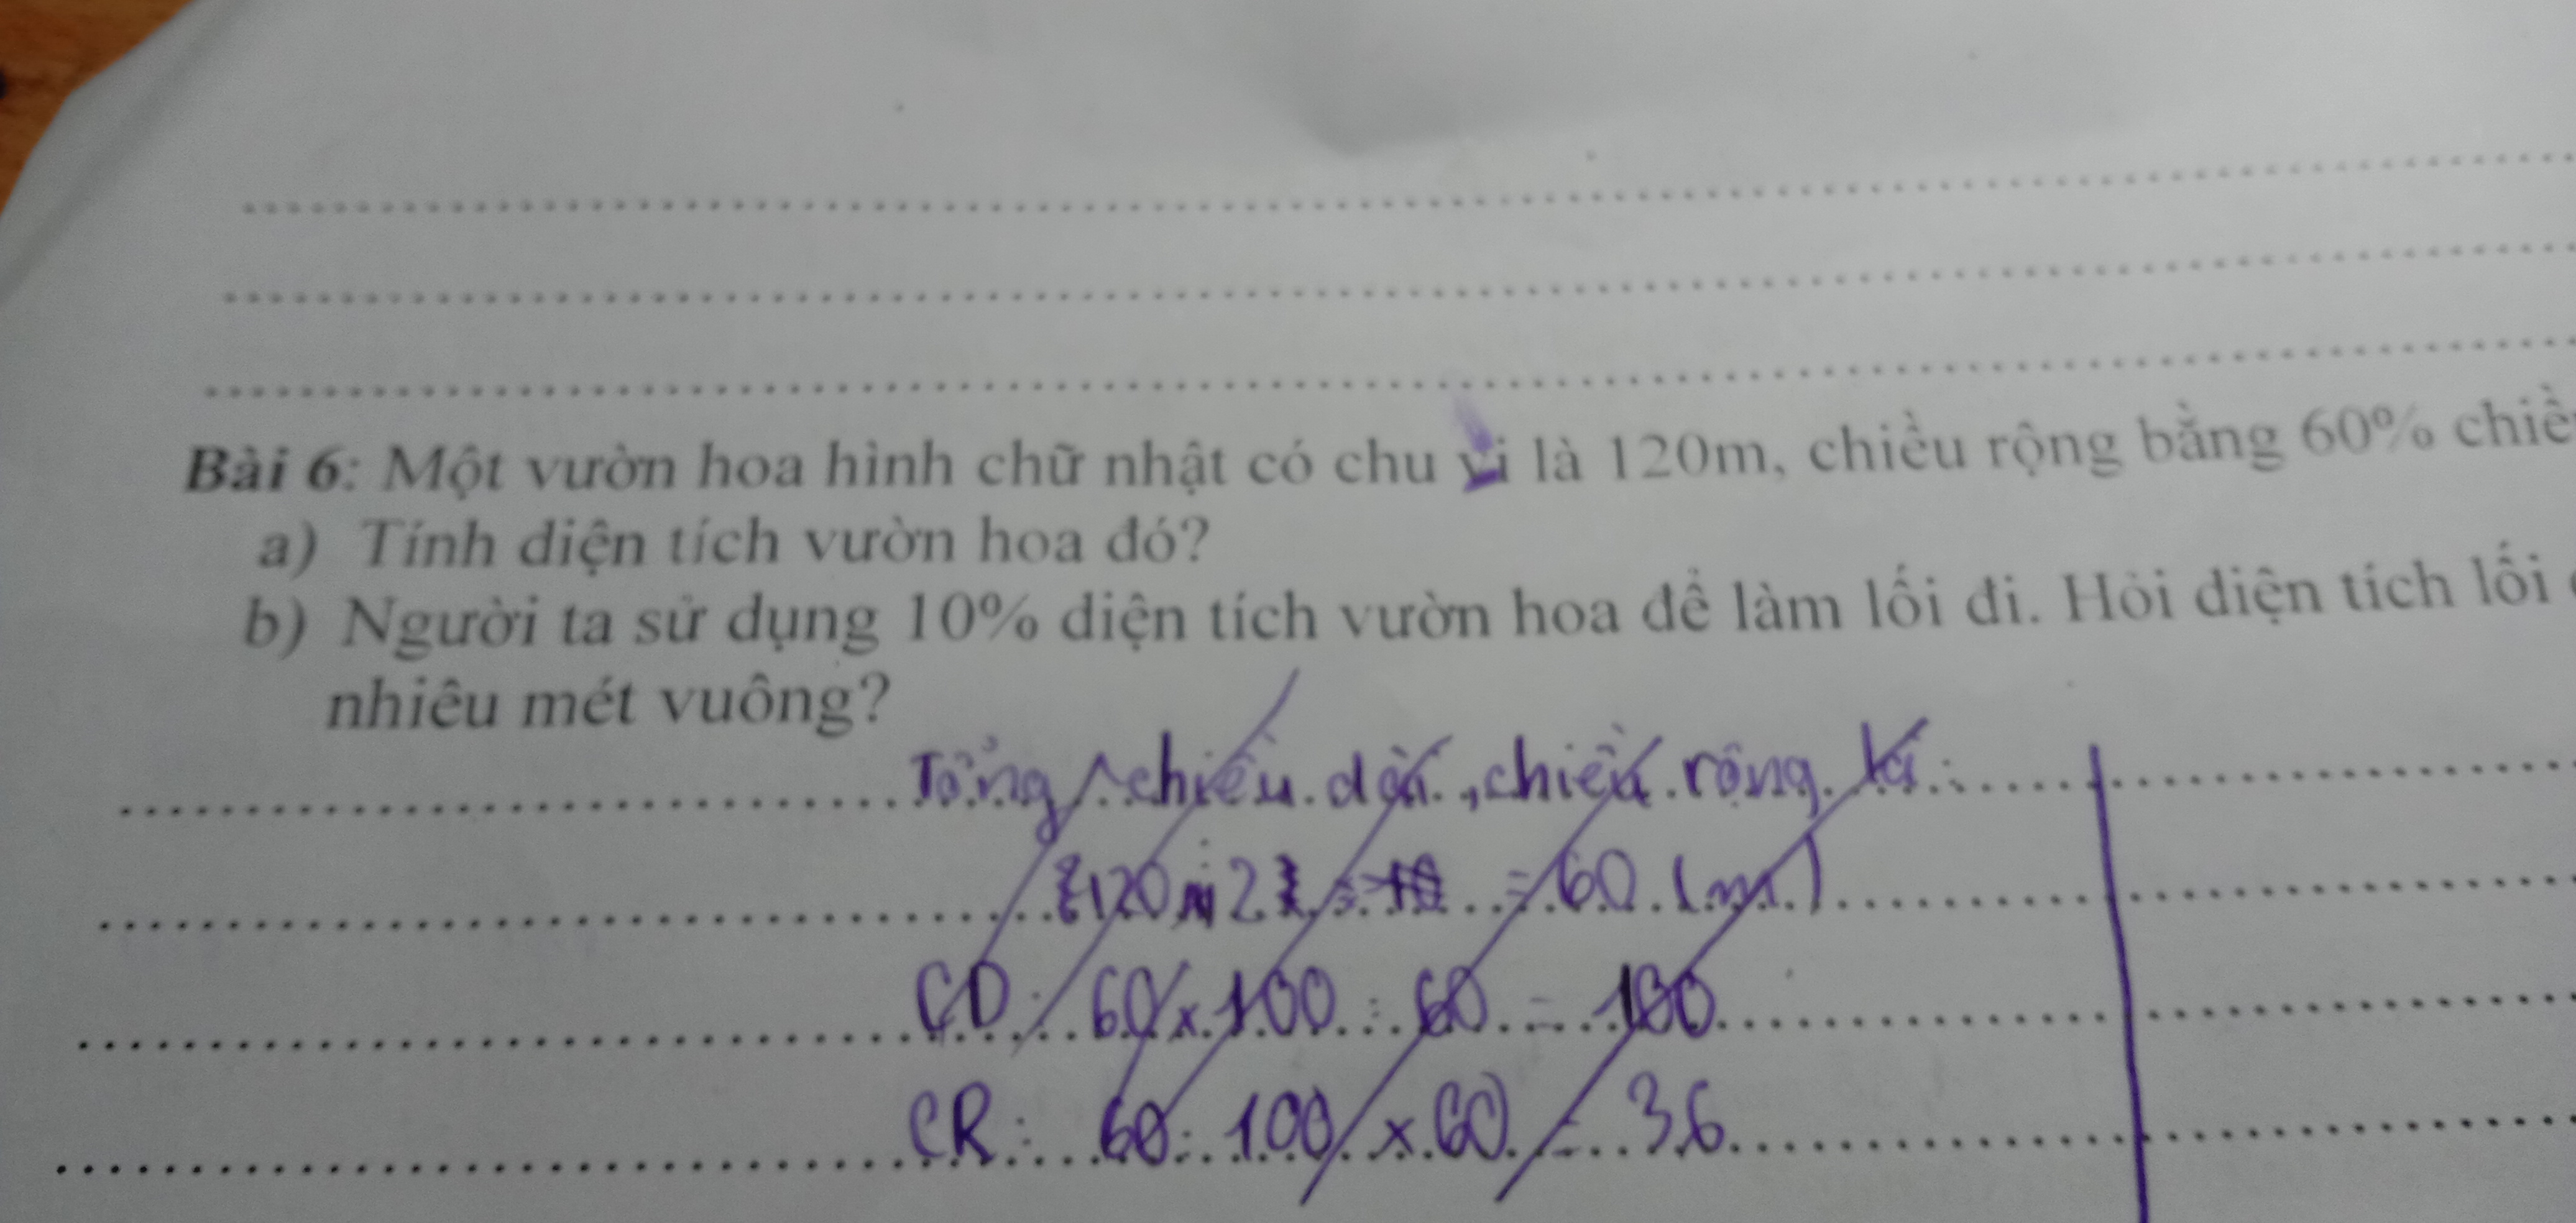 Bài 6: Một vườn hoa hình chữ nhật có chu vi là 120m, chiều rộng bằng 60% chiề
a) Tính diện tích vườn hoa đó?
b) Người ta sử dụng 10% diện tích vườn hoa để làm lối đi. Hỏi diện tích lối
nhiêu mét vuông?
Tổng chiều dài, chiều rộng là:
120 : 2 = 60 (m)
CD: 60 x 100 : 60 = 100
CR: 60 : 100 x 60 = 36